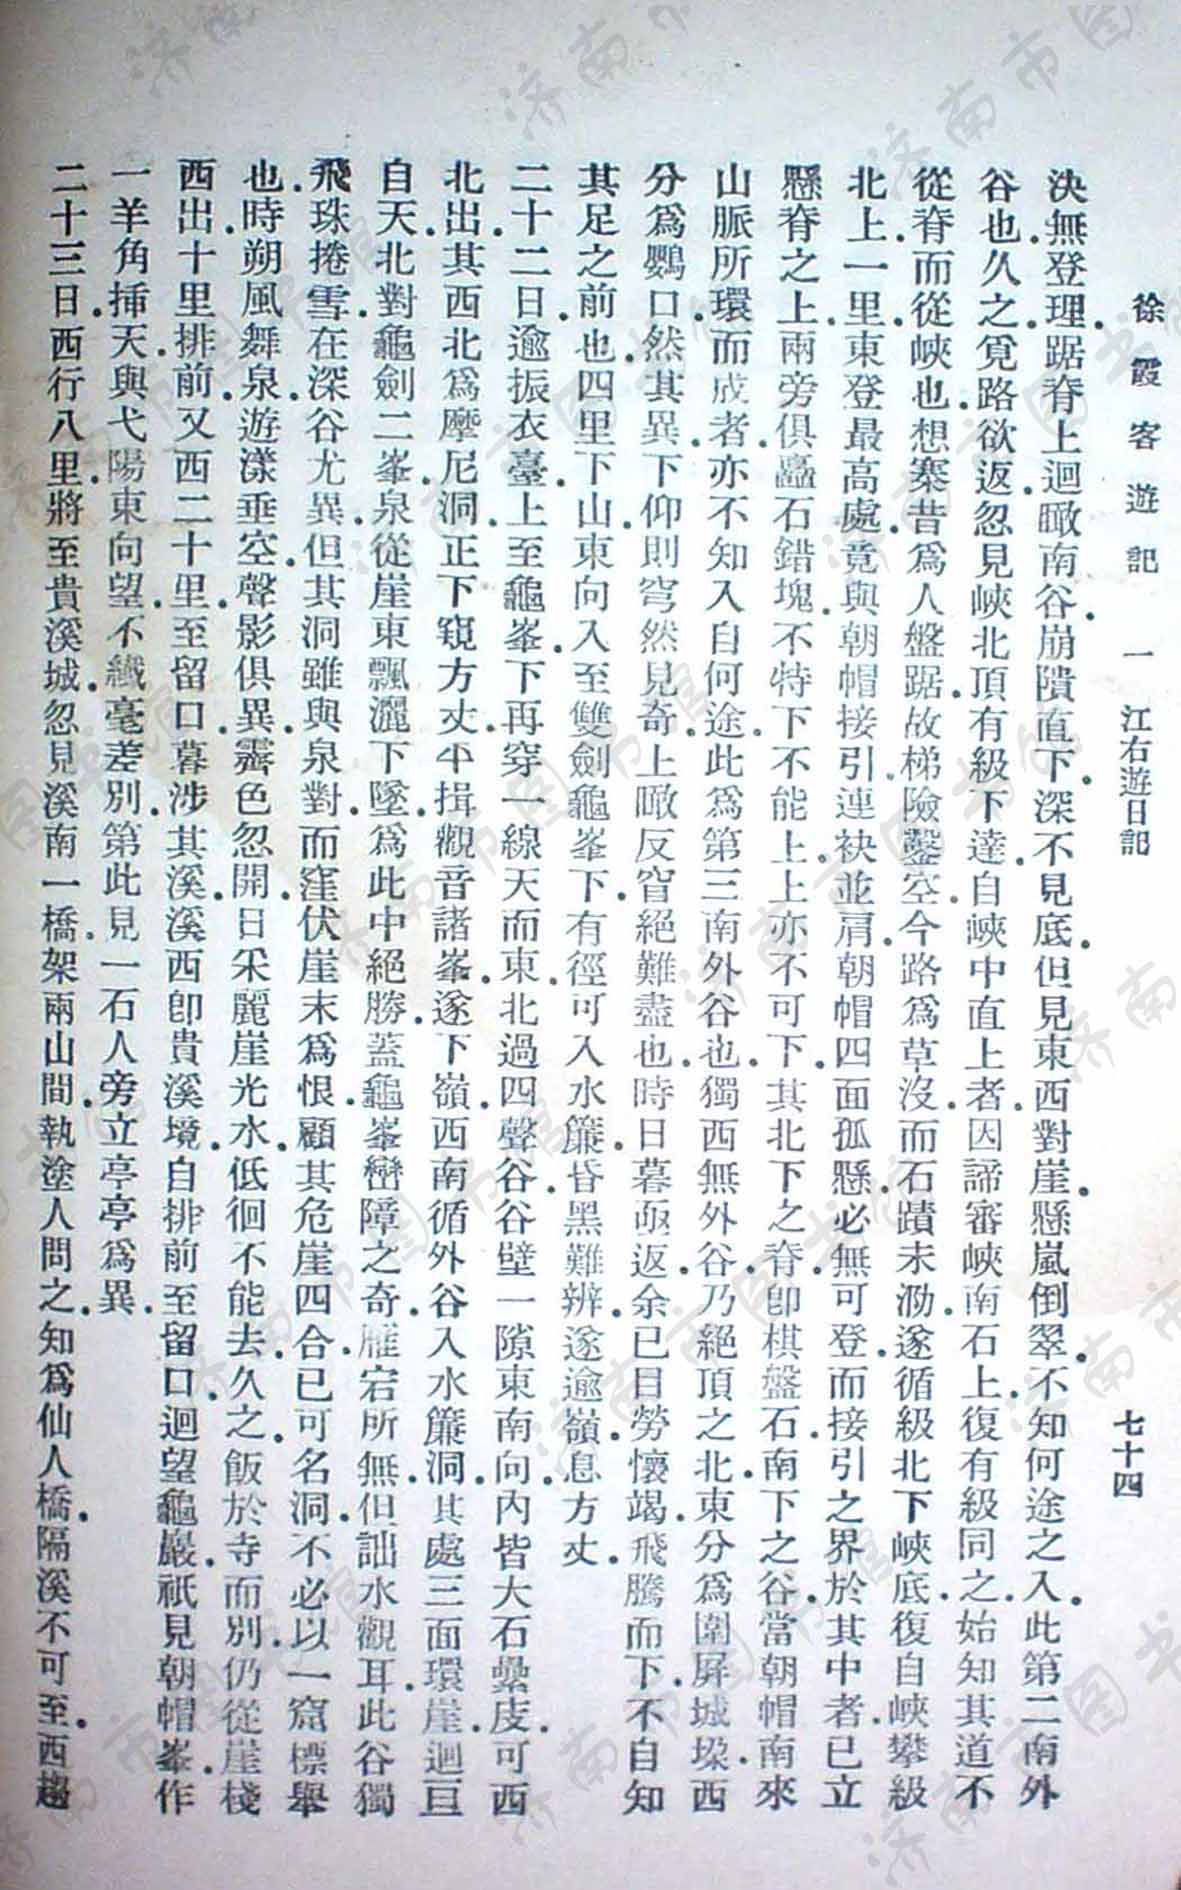 徐霞客遊記 一 江右遊日記 七十四
決無登理．踞脊上迴瞰南谷．崩隤直下．深不見底．但見東西對崖．懸嵐倒翠．不知何途之入．此第二南外
谷也．久之．覓路欲返．忽見峽北頂有級下達．自峽中直上者．因諦審峽南石上．復有級同之．始知其道不
從脊而從峽也．想寨昔爲人盤踞．故梯險鑿空．今路爲草沒．而石蹟未泐．遂循級北下峽底．復自峽攀級
北上．一里．東登最高處．竟與朝帽接引．連袂並肩．朝帽四面孤懸．必無可登．而接引之界於其中者．已立
懸脊之上．兩旁俱矗石錯塊．不特下不能上．上亦不可下．其北下之脊．卽棋盤石．南下之谷．當朝帽南來
山脈所環而成者．亦不知入自何途．此爲第三南外谷也．獨西無外谷．乃絕頂之北．東分爲圍屏城垛．西
分爲鸚口．然其異．下仰則穹然見奇．上瞰反窅絕難盡也．時日暮亟返．余已目勞懷竭．飛騰而下．不自知
其足之前也．四里下山．東向入至雙劍龜峯下．有徑可入水簾．昏黑難辨．遂逾嶺．息方丈．
二十二日．逾振衣臺．上至龜峯下．再穿一線天而東．北過四聲谷．谷壁一隙東南向．內皆大石疊庋．可西
北出．其西北爲摩尼洞．正下窺方丈．平揖觀音諸峯．遂下嶺．西南循外谷入水簾洞．其處三面環崖．迴亘
自天．北對龜劍二峯．泉從崖東飄灑下墜．爲此中絕勝．蓋龜峯巒障之奇．雁宕所無．但詘水觀耳．此谷獨
飛珠捲雪．在深谷尤異．但其洞雖與泉對．而窪伏崖末爲恨．顧其危崖四合．已可名洞．不必以一窟標舉
也．時朔風舞泉．遊漾垂空．聲影俱異．霽色忽開．日采麗崖光水．低徊不能去．久之．飯於寺而別．仍從崖棧
西出．十里．排前．又西二十里．至留口．暮涉其溪．溪西卽貴溪境．自排前至留口．迴望龜巖．祇見朝帽峯．作
一羊角插天．與弋陽東向望．不纖毫差別．第此見一石人旁立．亭亭爲異．
二十三日．西行八里．將至貴溪城．忽見溪南一橋．架兩山間．執塗人問之．知爲仙人橋．隔溪不可至．西趨